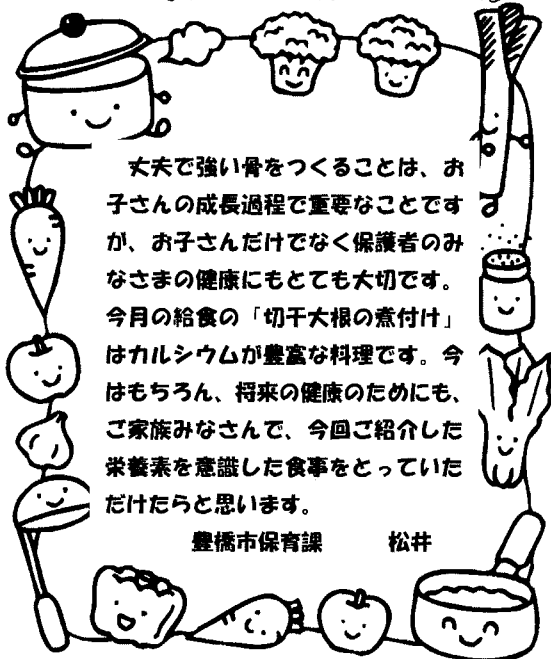 丈夫で強い骨をつくることは、お
子さんの成長過程で重要なことです
が、お子さんだけでなく保護者のみ
なさまの健康にもとても大切です。
今月の給食の「切干大根の煮付け」
はカルシウムが豊富な料理です。今
はもちろん、将来の健康のためにも、
ご家族みなさんで、今回ご紹介した
栄養素を意識した食事をとっていた
だけたらと思います。
豊橋市保育課　松井